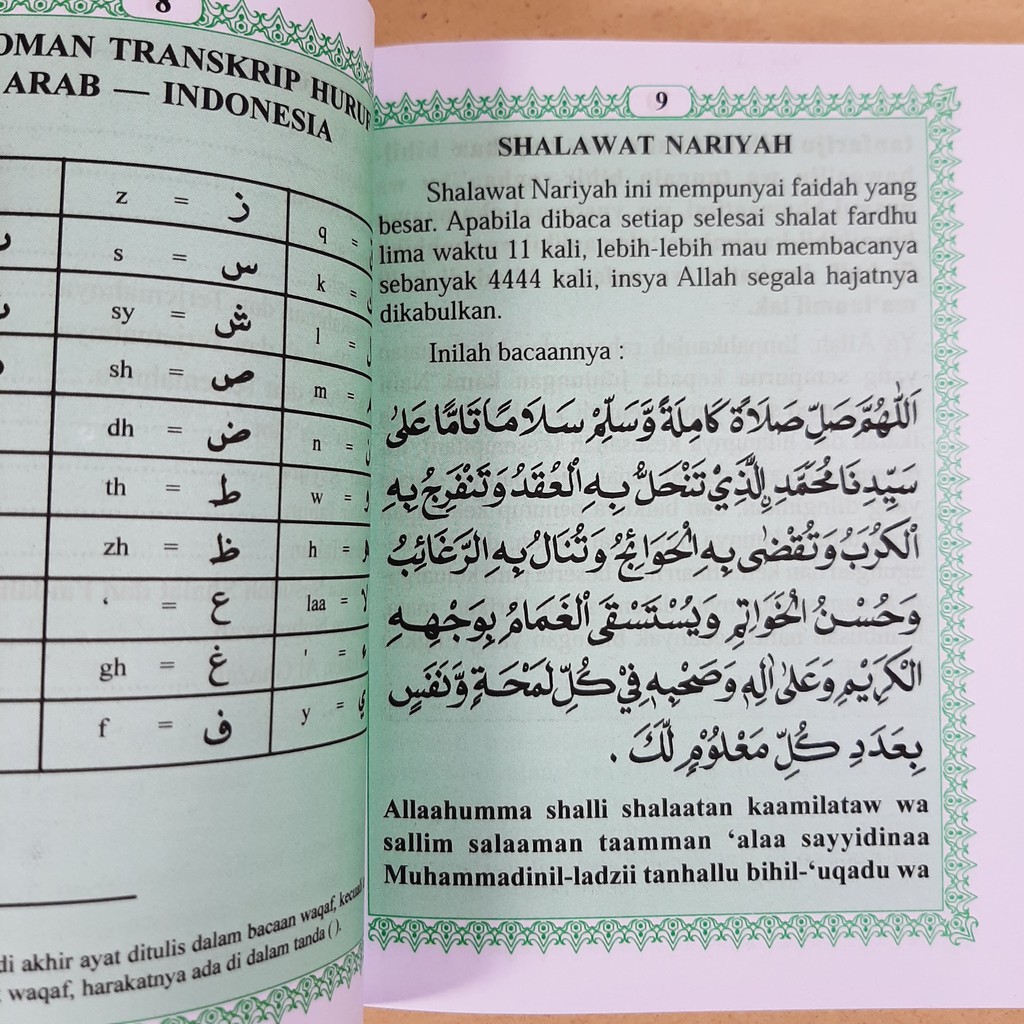 8
OMAN TRANSKRIP HURUF
ARAB — INDONESIA
z = ز
q =
s = س
k =
sy = ش
l =
sh = ص
m =
dh = ض
n =
th = ط
w =
zh = ظ
h =
‘ = ع
laa =
gh = غ
' = ء
f = ف
y = ي
di akhir ayat ditulis dalam bacaan waqaf, kecuali
waqaf, harakatnya ada di dalam tanda ().
9
SHALAWAT NARIYAH
Shalawat Nariyah ini mempunyai faidah yang
besar. Apabila dibaca setiap selesai shalat fardhu
lima waktu 11 kali, lebih-lebih mau membacanya
sebanyak 4444 kali, insya Allah segala hajatnya
dikabulkan.
Inilah bacaannya :
اَللّٰهُمَّ صَلِّ صَلَاةً كَامِلَةً وَّسَلِّمْ سَلَامًا تَامًّا عَلىٰ
سَيِّدِنَا مُحَمَّدِ ِۨالَّذِيْ تَنْحَلُّ بِهِ الْعُقَدُ وَتَنْفَرِجُ بِهِ
الْكُرَبُ وَتُقْضٰى بِهِ الْحَوَائِجُ وَتُنَالُ بِهِ الرَّغَائِبُ
وَحُسْنُ الْخَوَاتِمِ وَيُسْتَسْقَى الْغَمَامُ بِوَجْهِهِ
الْكَرِيْمِ وَعَلىٰ اٰلِهٖ وَصَحْبِهٖ فِيْ كُلِّ لَمْحَةٍ وَّنَفَسٍ
بِعَدَدِ كُلِّ مَعْلُوْمٍ لَّكَ .
Allaahumma shalli shalaatan kaamilataw wa
sallim salaaman taamman ‘alaa sayyidinaa
Muhammadinil-ladzii tanhallu bihil-‘uqadu wa